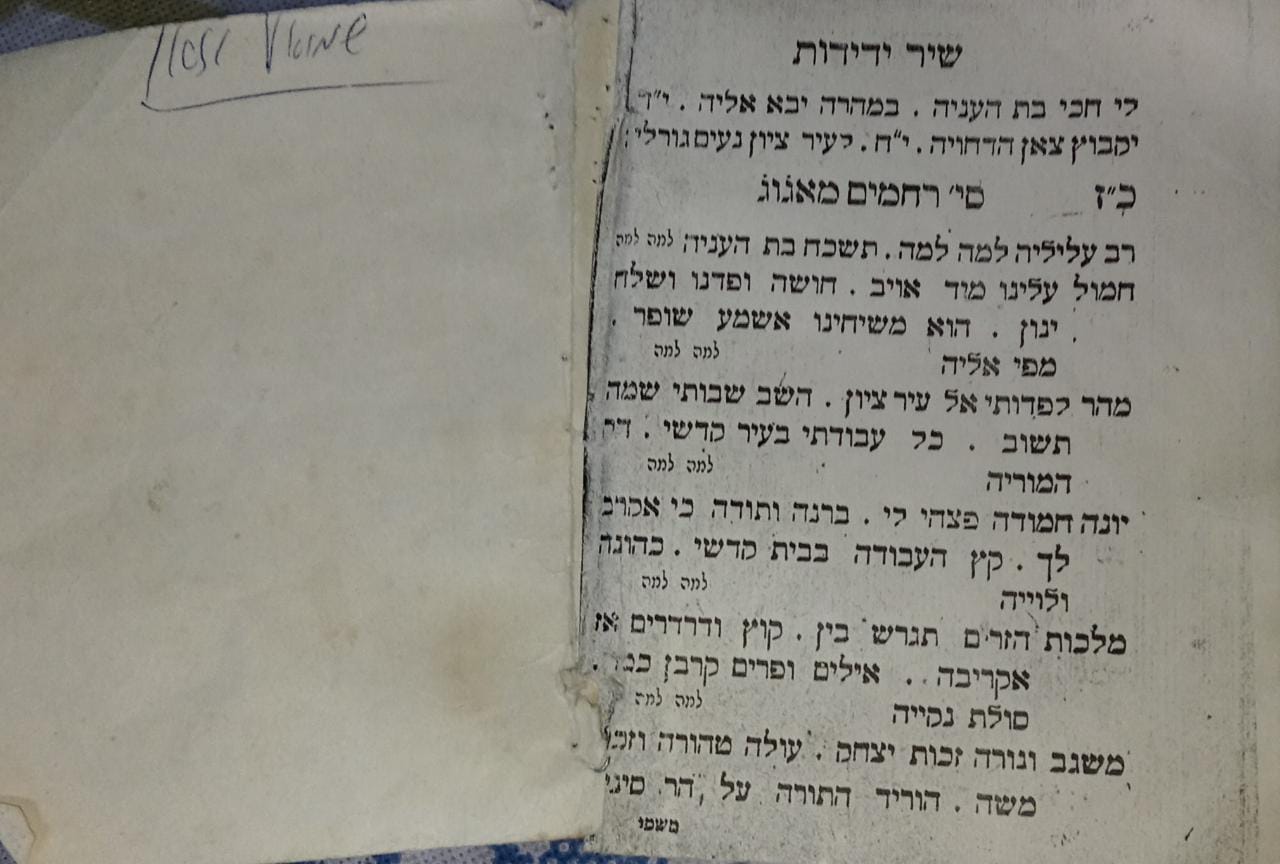 שיר ידידות
לי חכי בת העניה . במהרה יבא אליה . י״ד
יקבוץ צאן הדחויה . י״ח . לעיר ציון נעים גורלי :
כ״ז סי׳ רחמים מאגוג
רב עליליה למה למה . תשכח בת העניה למה למה
חמול עלינו מיד אויב . חושה ופדנו ושלח
ינון . הוא משיחינו אשמע שופר .
מפי אליה למה למה
מהר לפדותי אל עיר ציון . השב שבותי שמה
תשוב . כל עבודתי בעיר קדשי . הר
המוריה למה למה
יונה חמודה פצחי לי . ברנה ותודה כי אקרב
לך . קץ העבודה בבית קדשי . כהונה
ולוייה למה למה
מלכות הזרים תגרש בין . קוץ ודרדרים אז
אקריבה . אילים ופרים קרבן
סולת נקייה למה למה
משגב ונורה זכות יצחק . עולה טהורה וזכות
משה . הוריד התורה על הר סיני
משמי